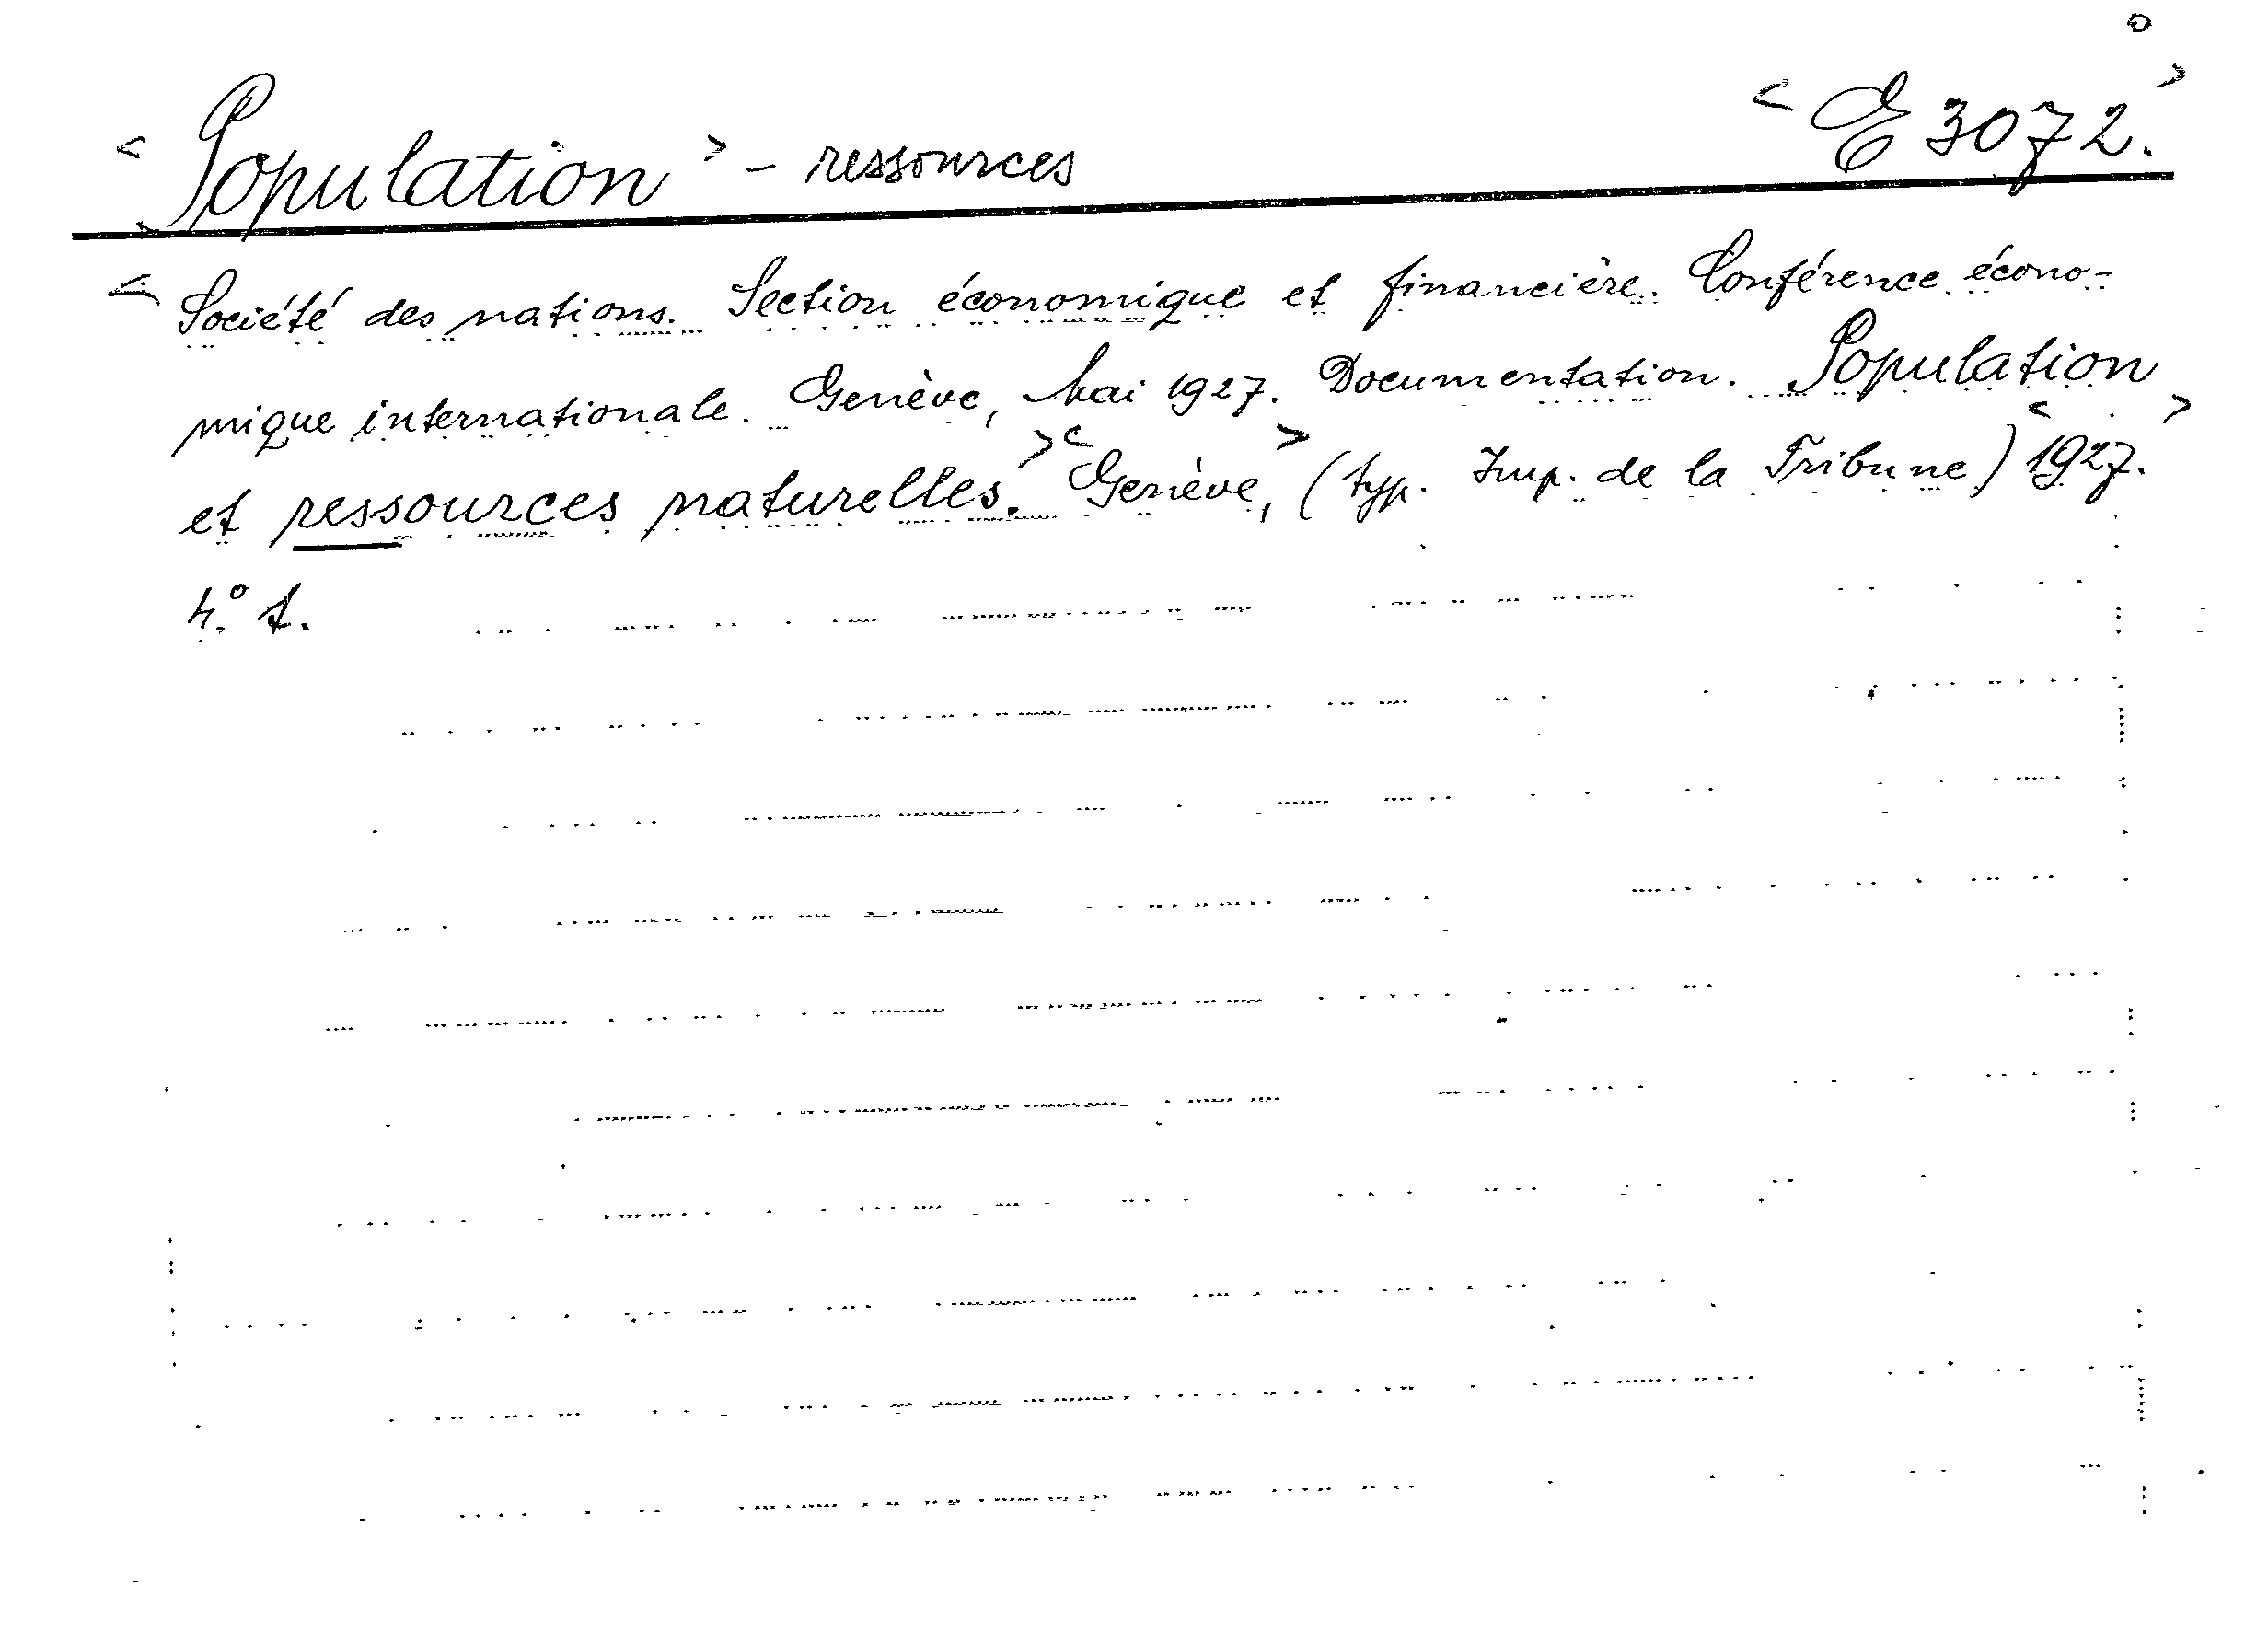 <Population> - ressources <E 3072.>
<Société des nations. Section économique et financière. Conférence écono-
mique internationale. Genève, Mai 1927. Documentation. Population
et ressources naturelles.> <Genève,> (typ. Imp. de la Tribune) <1927.>
4.° t.